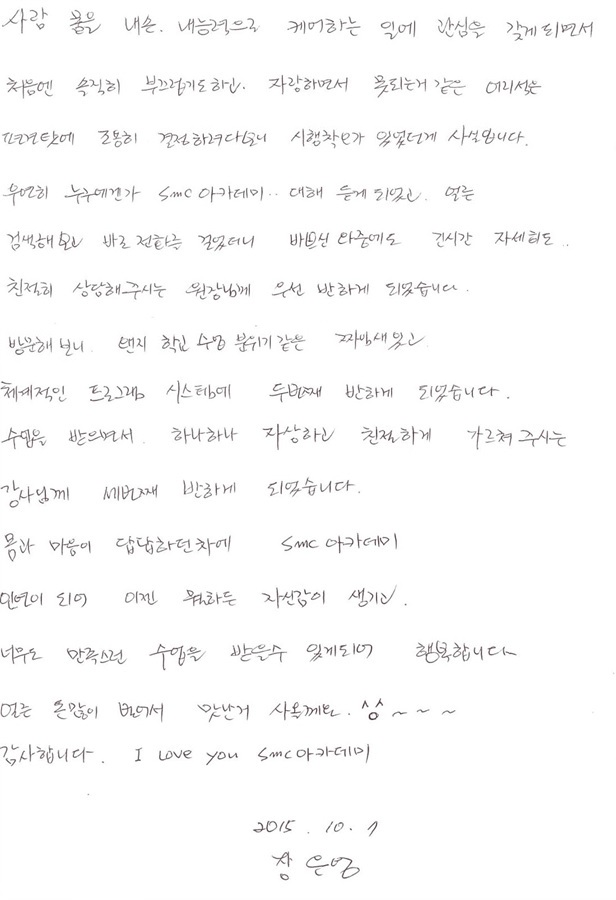 사람 몸을 내손. 내능력으로 케어하는 일에 관심을 갖게 되면서
처음엔 솔직히 부끄럽기도하고. 자랑하면서 못되는거 같은 어리석은
편견탓에 조용히 결정하려다보니 시행착오가 있었던게 사실입니다.
우연히 누구에겐가 smc 아카데미.. 대해 듣게 되었고. 얼른
검색해보고 바로 전화를 걸었더니 바쁘신 와중에도 긴시간 자세히도..
친절히 상담해주시는 원장님께 우선 반하게 되었습니다.
방문해 보니. 왠지 학교 수업 분위기 같은 짜임새있고
체계적인 프로그램 시스템에 두번째 반하게 되었습니다.
수업을 받으면서. 하나하나 자상하고 친절하게 가르쳐 주시는
강사님께 세번째 반하게 되었습니다.
몸과 마음이 답답하던차에 smc 아카데미
인연이 되어 이젠 뭐하든 자신감이 생기고.
너무도 만족스런 수업을 받을수 있게되어 행복합니다
얼른 돈많이 벌어서 맛난거 사올께요. ^^ ~ ~ ~
감사합니다. I Love you smc아카데미
2015. 10. 7
장은영